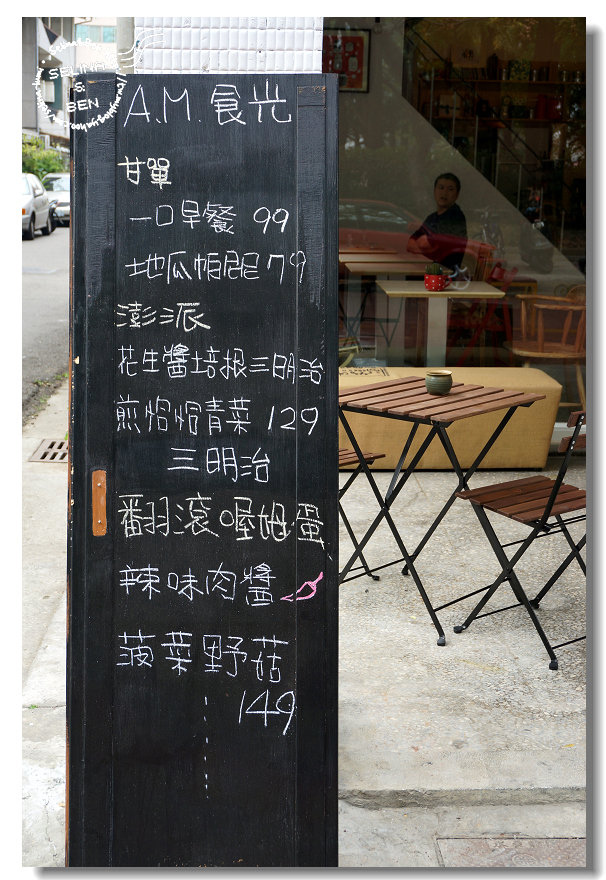 SELINA
&
BEN
A.M. 食光
甘單
一口早餐 99
地瓜帕尼尼 79
澎派
花生醬培根三明治
煎恰恰青菜 129
三明治
翻滾喔姆蛋
辣味肉醬
菠菜野菇
149